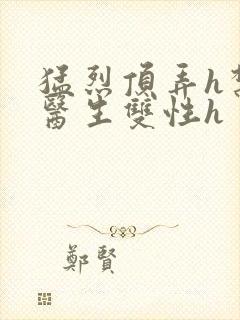 猛烈頂弄h
醫生雙性h
鄭賢